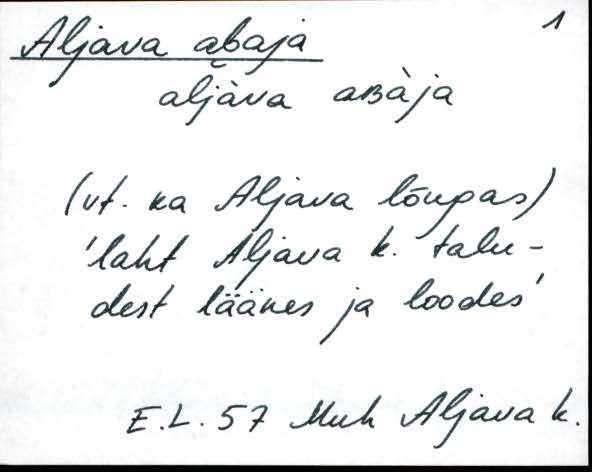 Aljava abaja 1
aljàva aʙàja
(vt. ka Aljava lõugas)
'laht Aljava k. talu-
dest läänes ja loodes'
E.L. 57 Muh Aljava k.